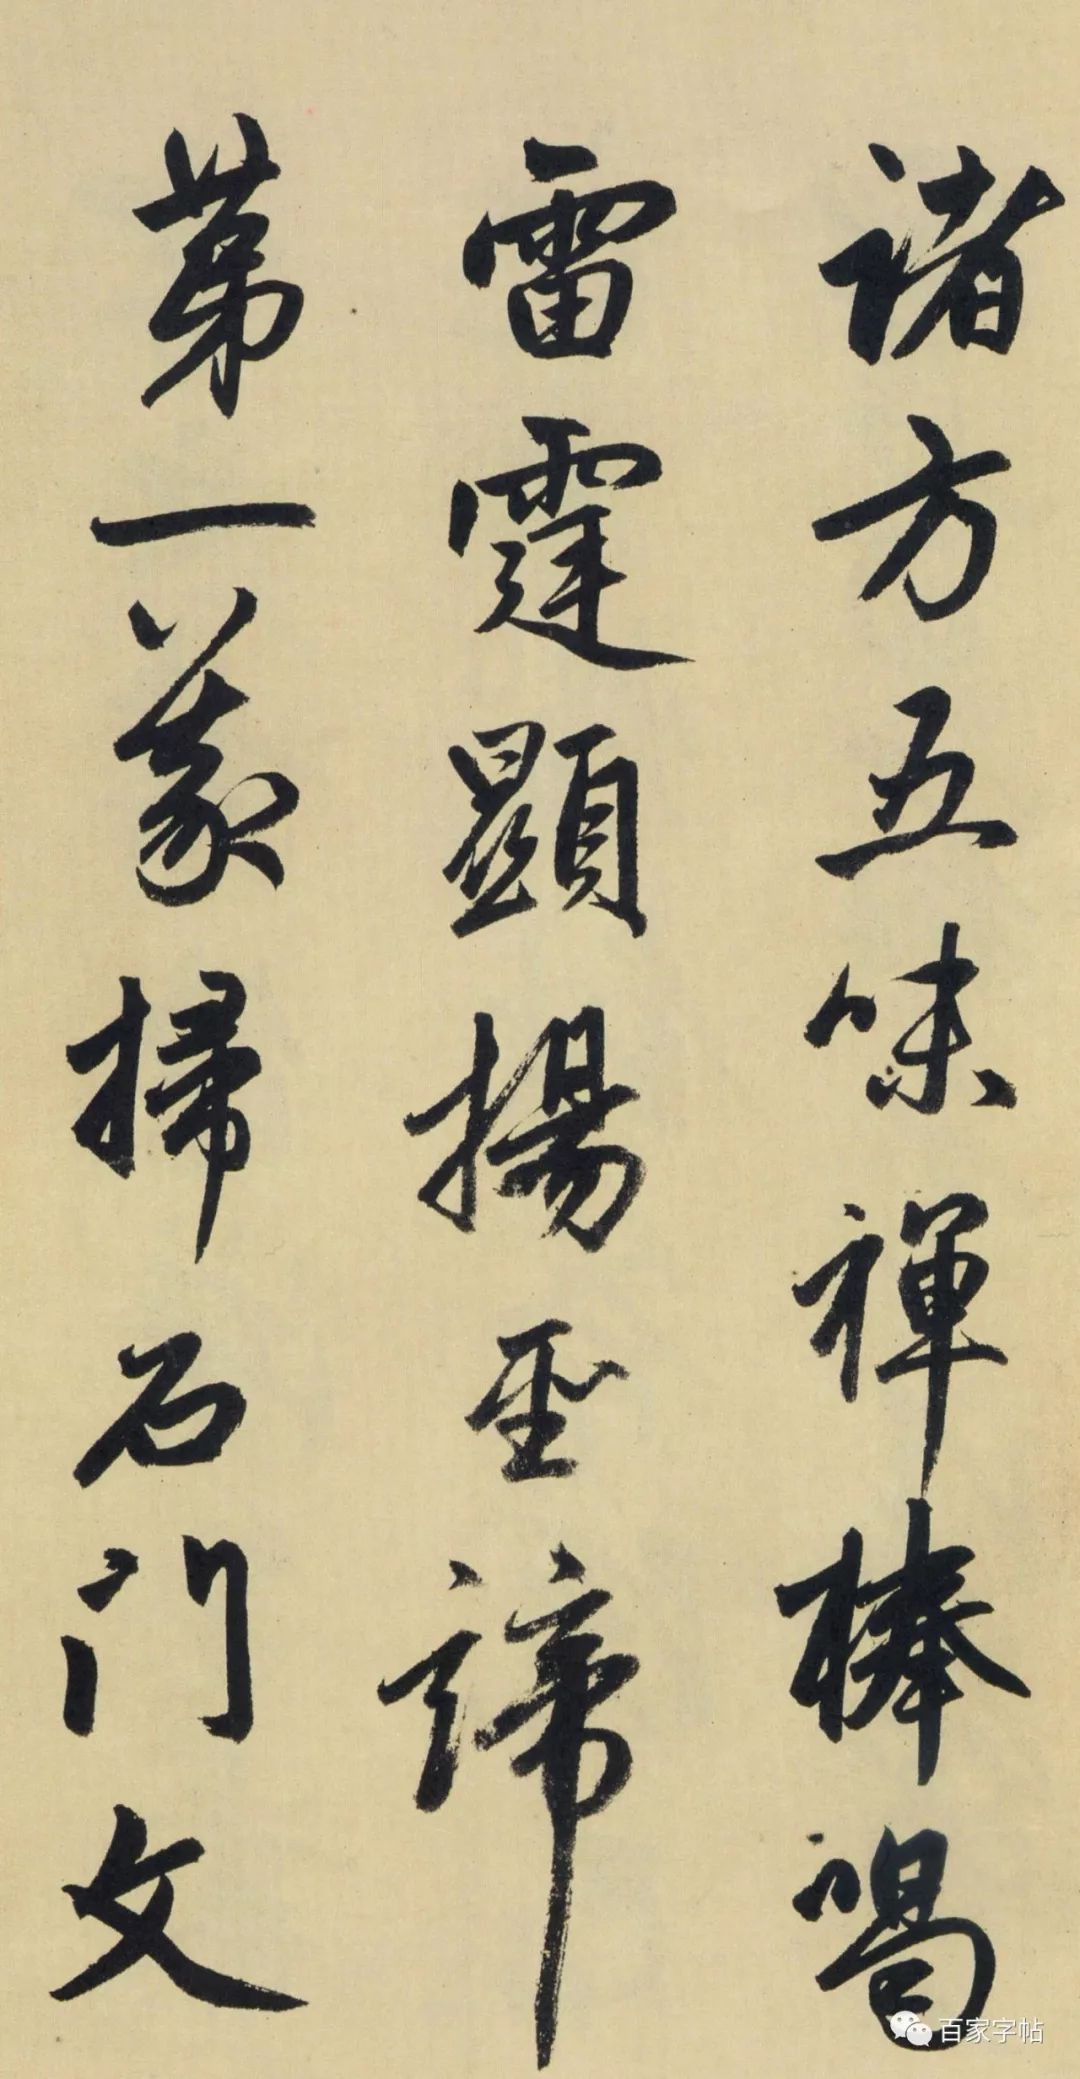 諸方五味禪棒喝
雷霆顯揚聖諦
第一義掃石門文
百家字帖